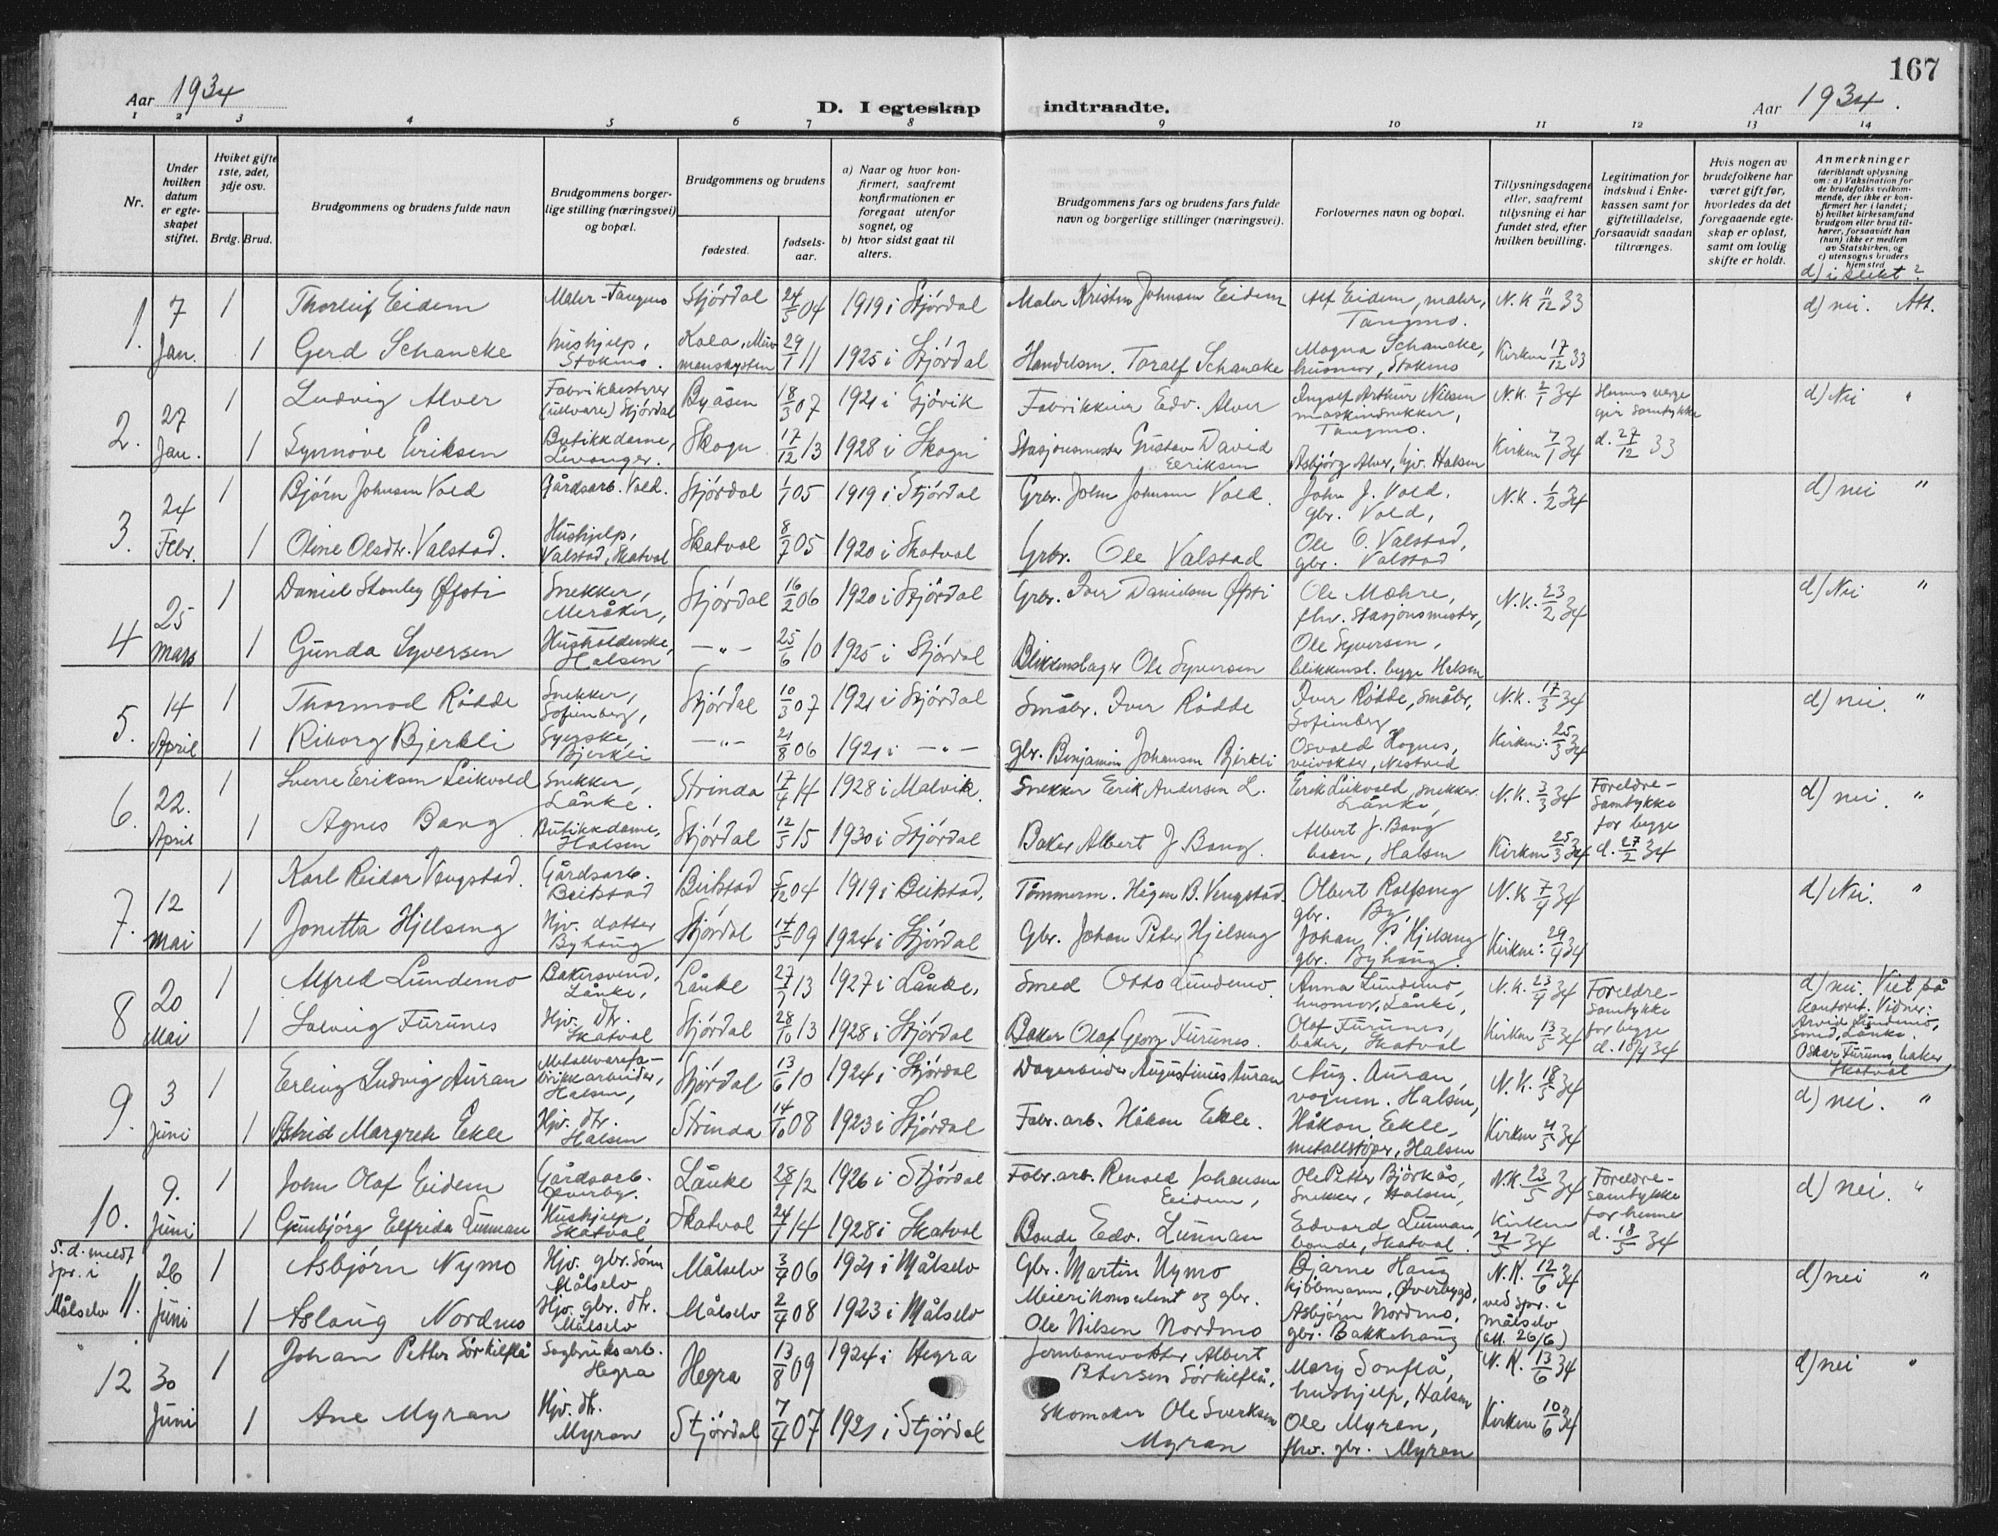 167
Aar 1934
D. I egteskap indtraadte.
Aar 1934.
1 2 3 4 5 6 7 8 9 10 11 12 13 14
Nr.
Under hvilken datum er egteskapet stiftet.
Hvilket gifte 1ste, 2det, 3dje osv.
Brdg. Brud.
Brudgommens og brudens fulde navn
Brudgommens borgerlige stilling (næringsvei) og bopæl.
Brudgommens og brudens
fødested.
fødselsaar.
a) Naar og hvor konfirmert, saafremt konfirmationen er foregaat utenfor sognet, og
b) hvor sidst gaat til alters.
Brudgommens fars og brudens fars fulde navn og borgerlige stillinger (næringsvei).
Forlovernes navn og bopæl.
Tillysningsdagene eller, saafremt tillysning ei har fundet sted, efter hvilken bevilling.
Legitimation for indskud i Enkekassen samt for giftetilladelse, forsaavidt saadan tiltrænges.
Hvis nogen av brudefolkene har været gift før, hvorledes da det foregaaende egteskap er opløst, samt om lovlig skifte er holdt.
Anmerkninger (deriblandt oplysning om: a) Vaksination for de brudefolks vedkommende, der ikke er konfirmert her i landet; b) hvilket kirkesamfund brudgom eller brud tilhører, forsaavidt han (hun) ikke er medlem av Statskirken, og c) utensogns bruders hjemsted
d) i slekt?
1. 7 Jan. 1 Thorleif Eidem Maler-Tangmo Stjørdal 24/5 04 1919 i Stjørdal Maler Kristen Johnsen Eidem Alf Eidem, maler, Tangmo. N.K. 11/12 33 d) nei. Att.
1 Gerd Schancke hushjelp, Stokmo. Kola, Murmanskysten 29/1 11 1925 i Stjørdal Handelsm. Toralf Schancke Magna Schancke, husmor, Stokmo Kirken 17/12 33
2. 27 Jan. 1 Ludvig Alver Fabrikbestyrer (ullvare) Stjørdal Byåsen 18/3 07 1921 i Gjøvik Fabrikkeier Edv. Alver Ingolf Arthur Nilsen maskinsnekker, Tangmo. N.K. 2/1 34 Hennes verge gir samtykke d. 27/12 33 d) Nei "
1 Synnøve Eriksen Butikkdame, Levanger. Skogn 17/12 13 1928 i Skogn Stasjonsmester Gustav David Eriksen Asbjørg Alver, hjv. Halsen Kirken 7/1 34
3. 24 Febr. 1 Bjørn Johnsen Vold Gårdsarb. Vold. Stjørdal 1/1 05 1919 i Stjørdal Grbr. John Johnsen Vold. John J. Vold, gbr. Vold, N.K. 1/2 34 d) nei "
1 Oline Olsdtr. Valstad. Hushjelp, Valstad, Skatval Skatval 8/7 05 1920 i Skatval Grbr. Ole Valstad Ole O. Valstad, gbr. Valstad
4 25 mars 1 Daniel Stanley Øfsti Snekker, Meråker, Stjørdal 16/2 06 1920 i Stjørdal Grbr. Iver Danielsen Øfsti Ole Mæhre, fhv. Stasjonsmester, N.K. 23/2 34 d) Nei "
1 Gunda Syversen Husholderske, Halsen —"— 25/6 10 1925 i Stjørdal Blikkenslager Ole Syversen Ole Syversen, blikkensl. begge Halsen
5. 14 April 1 Thormod Rødde Snekker, Sofienberg, Stjørdal 10/3 07 1921 i Stjørdal Småbr. Iver Rødde Iver Rødde, småbr, Sofienberg N.K. 17/3 34 d) nei. "
1 Riborg Bjerkli Syerske, Bjerkli —"— 21/8 06 1921 i —"— Gbr. Benjamin Johansen Bjerkli Osvald Hognes, veivokter, Nestveid Kirken: 25/3 34
6. 22. April 1 Sverre Eriksen Leikvold Snekker, Lånke. Strinda 17/4 14 1928 i Malvik. Snekker Erik Andersen L. Erik Leikvold, snekker Lånke, N.K. 3/3 34 Foreldresamtykke for begge d. 27/2 34 d) nei. "
1 Agnes Bang Butikkdame, Halsen Stjørdal 12/5 15 1930 i Stjørdal Baker Albert J. Bang. Albert J. Bang baker, Halsen Kirken 25/3 34
7. 12 mai 1 Karl Reidar Vengstad. Gårdsarb. Beitstad Beitstad 5/12 04 1919 i Beitstad, Tømmerm. Hågen B. Vengstad. Olbert Rolfseng gbr. By, N.K. 7/4 34 d) Nei. "
1 Jonetta Hjelseng Hjv. datter Byhaug Stjørdal 14/5 09 1924 i Stjørdal Gbr. Johan Peter Hjelseng Johan P. Hjelseng gbr. Byhaug. Kirken: 29/4 34
8 20 Mai 1 Alfred Lundemo Bakersvend, Lånke, Lånke 27/7 13 1927 i Lånke. Smed Otto Lundemo. Anna Lundemo, husmor, Lånke, N.K. 23/4 34 Foreldresamtykke for begge d. 18/4 34 d) nei. Viet på kontoret. Vidner: Arvid Lundemo, Smed, Lånke. Oskar Furunes, baker Skatval
1 Solveig Furunes Hjv. dtr. Skatval Stjørdal 28/10 13 1928 i Stjørdal Baker Olaf Georg Furunes. Olaf Furunes, baker, Skatval Kirken 13/5 34
9. 3 Juni 1 Erling Ludvig Auran Metallvarefabrikkarbeider, Halsen, Stjørdal 13/6 10 1924 i Stjørdal Dagarbeider Augustinus Auran Aug. Auran, Halsen, N.K. 18/5 34 d) nei. "
1 Astrid Margrete Ekle Hjv. dtr. Halsen Strinda 14/10 08 1923 i Stjørdal Fabr. arb. Håkon Ekle. Håkon Ekle, metallstøper, Halsen Kirken 4/5 34
10. 9. Juni 1 John Olaf Eidem Gårdsarb. Øverby. Lånke 28/7 12 1926 i Stjørdal Fabr. arb. Renold Johansen Eidem, Ole Petter Bjørkås, Snekker, Halsen, N.K. 23/5 34 Foreldresamtykke for henne d. 18/5 34 d) nei. "
1 Gunbjørg Elfrida Lunnan Hushjelp, Skatval Skatval 24/7 14 1928 i Skatval Bonde Edv. Lunnan Edvard Lunnan, bonde, Skatval. Kirken 21/5 34
S. d. meldt spr. i Målselv 11. 26 juni Asbjørn Nymo Hjv. gbr. sønn Målselv Målselv 3/4 06 1921 i Målselv Gbr. Martin Nymo Bjarne Haug kjøbmann, Øverbygd, N.K. 12/6 34 ved spr. i målselv (att. 26/6) d) nei "
1 Aslaug Nordmo Hjv. gbr. dtr. Målselv Målselv 2/4 08 1923 i Målselv Meierikonsulent og gbr. Ole Nilsen Nordmo Asbjørn Nordmo, gbr. Bakkehaug
12 30 Juni 1 Johan Petter Sørkilflå Sagbruksarb. Hegra Hegra 13/8 09 1924 i Hegra Jernbanevokter Albert Petersen Sørkilflå, Mary Sonflå, hushjelp, Halsen N.K. 13/6 34 d) nei "
1 Ane Myran Hjv. dtr. Myran Stjørdal 7/4 07 1921 i Stjørdal Skomaker Ole Sverksen Myran Ole Myran, fhv. gbr. Myran Kirken 10/6 34